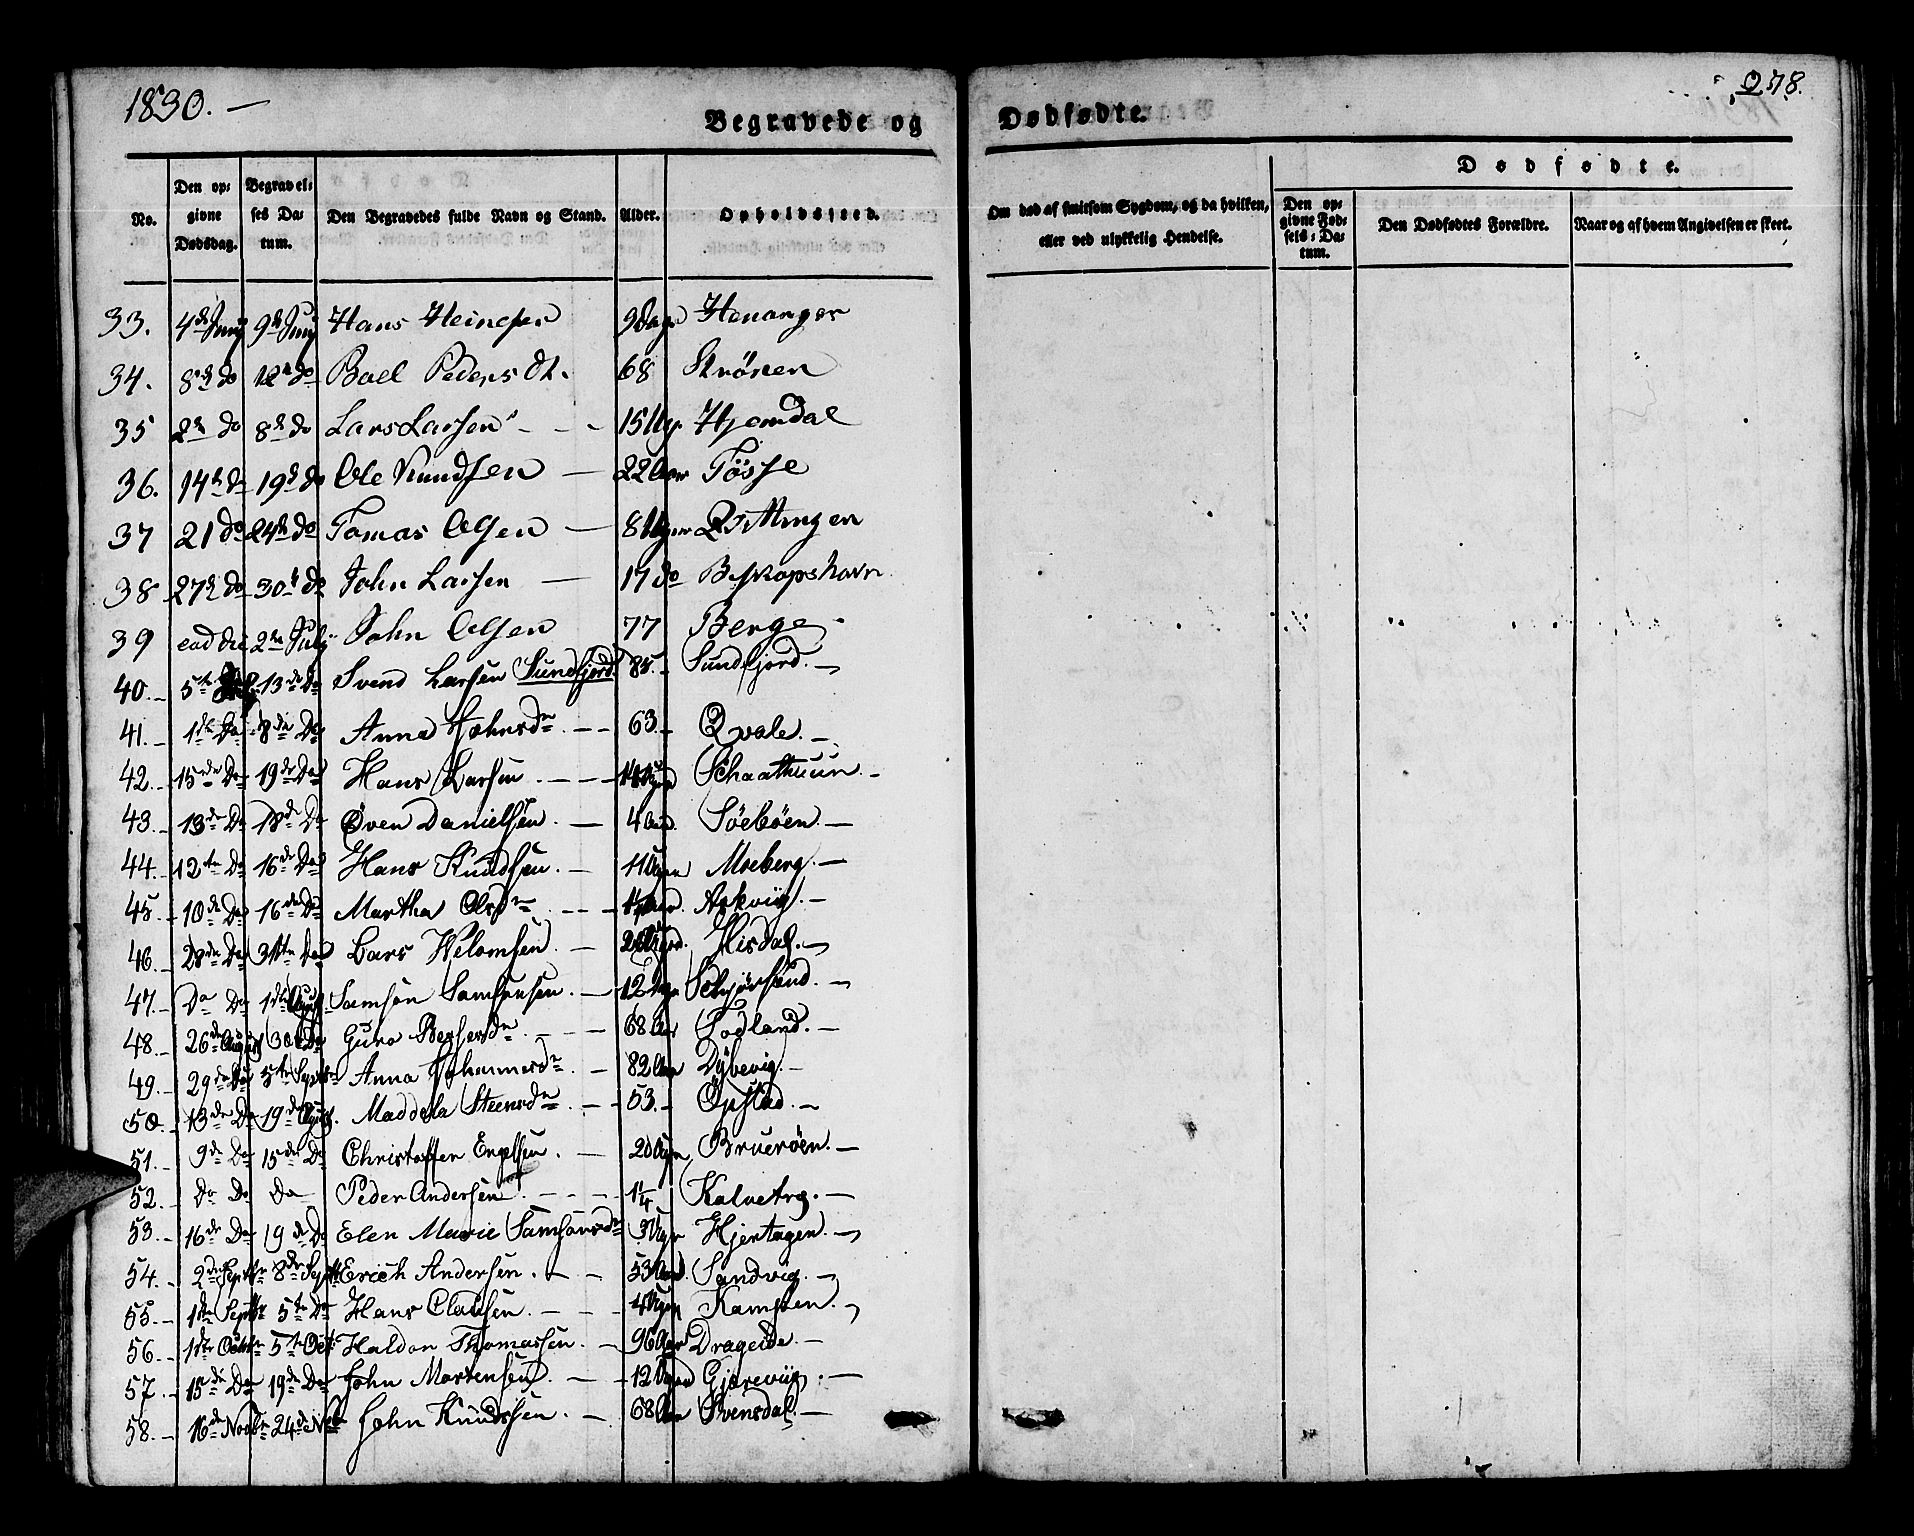 1830. —
278.
Begravede og Dødfødte.
Dødfødte.
No. Den opgivne Dødsdag. Begravelses Datum. Den Begravedes fulde Navn og Stand. Alder. Opholdssted. Om død af smitsom Sygdom, og da hvilken, eller ved ulykkelig Hendelse. Den opgivne Fødsels-Datum. Den Dødfødtes Forældre. Naar og af hvem Angivelsen er skeet.
33. 4de Junij 9de Junij Hans Heinesen 9 Dage Henanger
34. 8de do 12te do Boel Peders Dt. 68 Strönen
35 2de do 8de do Lars Larsen - - - 15 Ug. Hjemdal
36. 14de do 19de do Ole Knudsen — 22 Aar Tösse
37 21 do 24de do Tomas Olsen — 8 Uger Qvittingen
38 27de do 30te do John Larsen — 17 do Biskopshavn
39 ead die 2den July John Olsen 77 Berge
40. 5te 13de Do Svend Larsen Sundfjord 85. Sundfjord. —
41. 1ste Do 8de Do Anna Johnsdr. — — 63. Qvale. —
42. 15de Do 19de Do Hans Larsen. — — — Schaathuun. —
43. 13de Do 18de Do Øven Danielsen. — 4 Aar. Söebøen. —
44. 12te Do 16de Do Hans Knudsen. — 11 Ugen Moberg. —
45. 10de Do 16de Do Martha Olsdr. — — Askviig. —
46. 28de Do 31te Do Lars Wilomsen. — Hisdal. —
47. Do Do 1ste August Samson Samsonsen. — 12 Uger Schjørsand. —
48. 26de August 30te Do Guro Bersersdr. — — — 68 Aar Todland. —
49. 29de Do 5te Septbr Anna Johannesdr. — 82 Aar Dybevig. —
50. 13de Do 19de August. Maddela Steensdr. — — 53. Opstad. —
51. 9de Do 15de Do Christoffer Engelsen. — 20 Ugen Bruerøen. —
52. Do Do Do Peder Andersen. — — — 1¼ Kalvetrg. —
53. 16de Do 19de Do Elen Marie Samsonsdr. 3 Uger Hjertagen. —
54. 2den Septbr 8de Sept Erich Andersen. — — 53 Aar. Sandvig. —
55. 1ste Septbr 5te Do Hans Clausen. — — — 4 Ugen Kampen. —
56. 1ste Octbr 5te Oct Haldon Thomassen. — 96 Aar Drageide. —
57. 15de Do 19de Do John Mortensen. — 12 Ugen Gjöreviig. —
58. 16de Novbr 24de Nov John Knudsen. — 68 Aar Svensdal. —